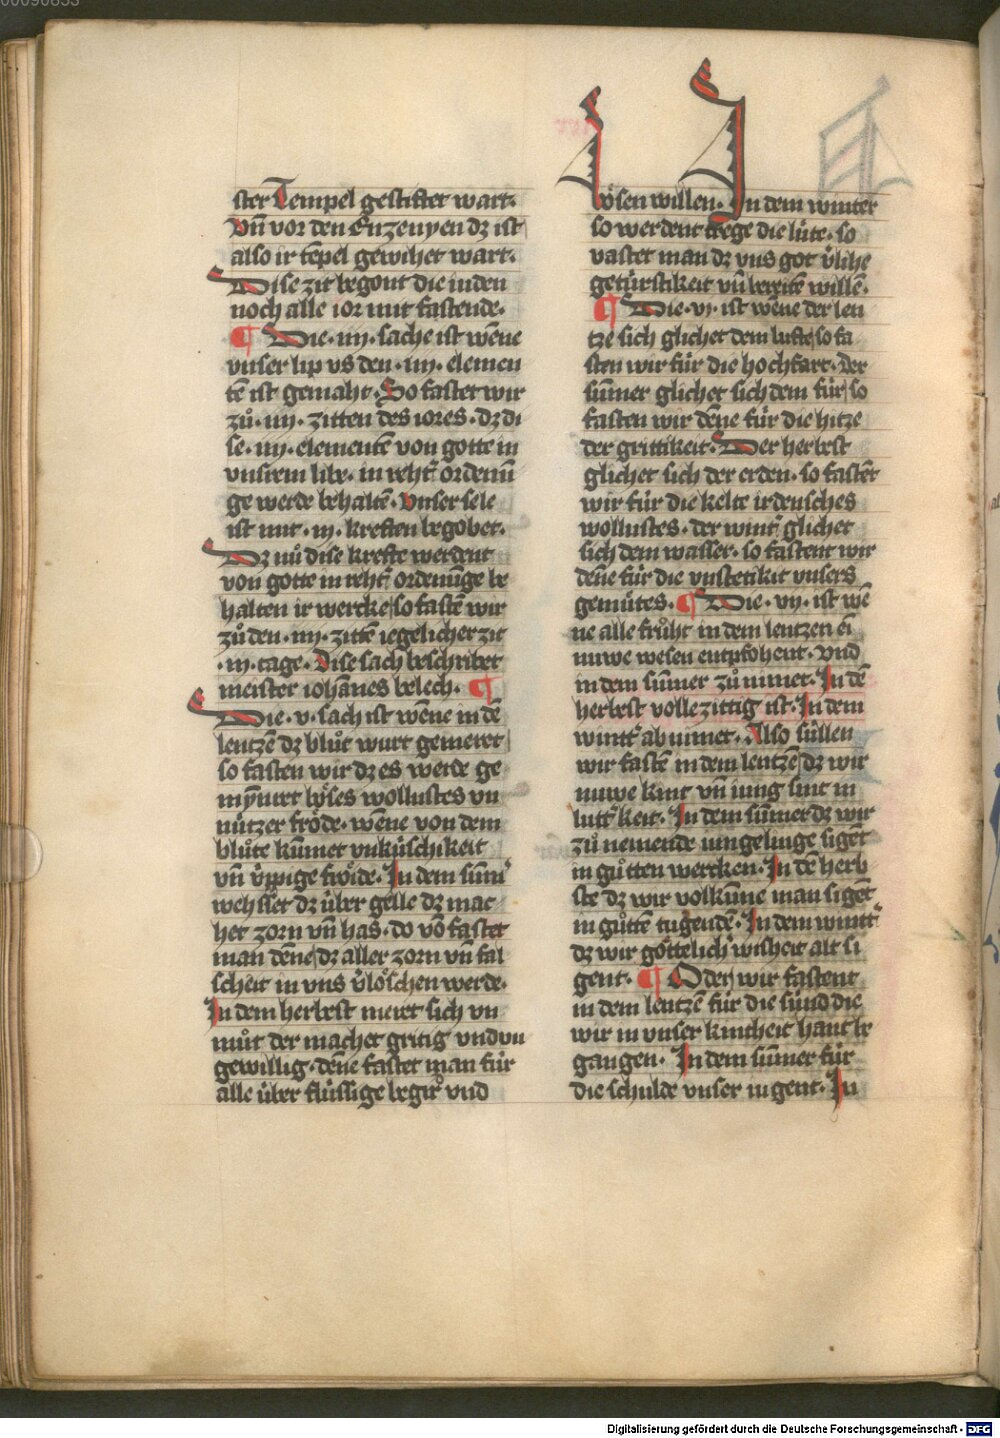 00090853
ster Tempel gestiftet wart·
Vn̄ vor den Enzenyen dz ist
also ir tēpel gewihet wart·
Dise zit begont die iuden
noch alle ior mit fastende·
¶ Die·iiij·sache ist wēne
vnser lip vs den·iiij·elemen
tē ist gemaht·So fastet wir
zů·iiij·zitten des iores·dz di
se·iiij·elementē von gotte in
vnsrem libe·in reht̛ ordenū
ge werde behaltē·Vnser sele
ist mit·iij·kreften begobet·
Dz nů dise krefte werdent
von gotte in reht̛ ordenūge be
halten ir wercke so fastē wir
zů den·iiij·zittē iegelicher zit
·iij·tage·Dise sach beschribet
meister iohānes belech· ¶
Die·v·sach ist wēne in dē
lentzē dz blůt wurt gemeret
so fasten wir dz es werde ge
mynret bőses wollustes vn
nützer frőde·wēne von dem
blůte kūmet vnküschikeit
vn̄ v̓ppige frőide·In dem sūm̓
wehsset dz über gelle dz mac
het zorn vn̄ has·do vō fastet
man dēne dz aller zorn vn̄ fal
scheit in vns v̓lőschen werde·
In dem herbest meret sich vn
můt der machet gritig vnd vn
gewillig·dēne fastet man für
alle über flüssige begir̓ vnd
bősen willen· In dem winter
so werdent trege die lüte·so
vastet man dz vns got v̓lihe
getürstikeit vn̄ bereitē willē·
¶ Die·vi·ist wēne der len
tze sich glichet dem lufte so fa
sten wir für die hochfart·Der
sūmer glichet sich dem für so
fasten wir dēne für die hitze
der grittikeit·Der herbest
glichet sich der erden·so fastēt
wir für die kelte irdensches
wollustes·der wint̛ glichet
sich dem wasser·so fastent wir
dēne für die vnstetikit vnsers
gemütes· ¶ Die·vij·ist wē
ne alle frűht in dem lentzen ei
nuwe wesen entpfohent·vnd
in dem sūmer zů nimet·In dē
herbest volle zittig ist·In dem
wint̛ ab nimet·Also süllen
wir fastē in dem lentzē dz wir
nuwe kint vn̄ iung sint in
lutt̛keit·In dem sūmer dz wir
zů nemende iungelinge sigēt
in gůtten wercken·In dē herb
ste dz wir volkūne man sigēt
in gůttē tugendē·In dem wint̛
dz wir gőttelich̛ wisheit alt si
gent· ¶ Oder wir fastent
in dem lentzē für die sünd die
wir in vnser kintheit hant be
gangen· In dem sūmer für
die schulde vnser iugent·In
Digitalisierung gefördert durch die Deutsche Forschungsgemeinschaft - DFG